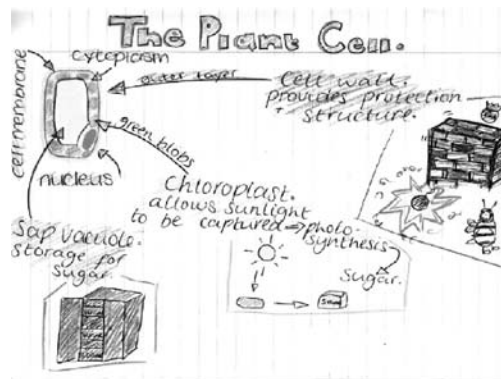 The Plant Cell.
cytoplasm
cell membrane
outer layer
Cell wall.
provides protection
+ structure.
green blobs
nucleus
Chloroplast.
allows sunlight
to be captured → photo-
synthesis
Sugar.
Sap vacuole.
storage for
sugar.